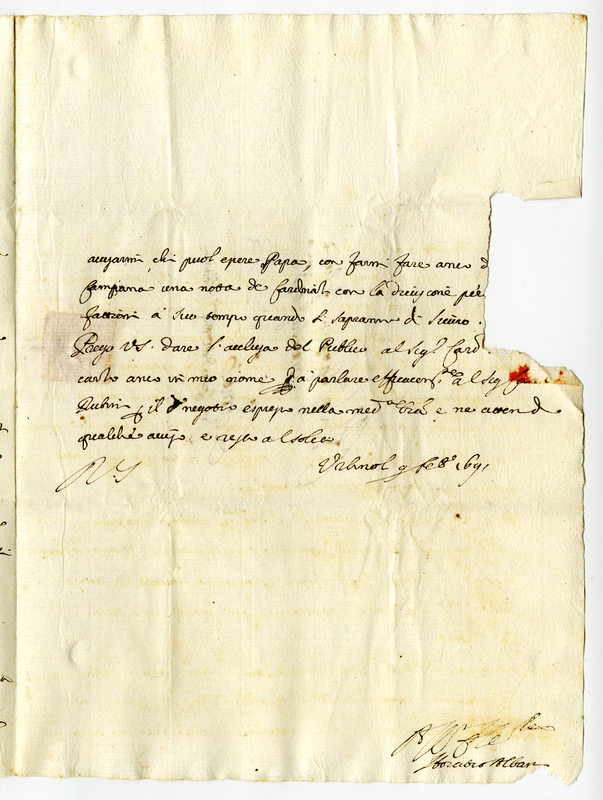 avisarmi chi puol essere Papa, con farmi fare anco d
Campana una notta de Cardinali con la divisione per
fattioni à suo tempo quando si sapranno di sicuro.
Prego VS. dare l'acclusa del Publico al Sig.r Card
carlo anco in mio nome, à parlare al Sig
Rubini il negotio espresso nella med.a e ne attend
qualche aviso e resto al solito
VS
Urbino li 9 feb.o 1691
Horatio Alban